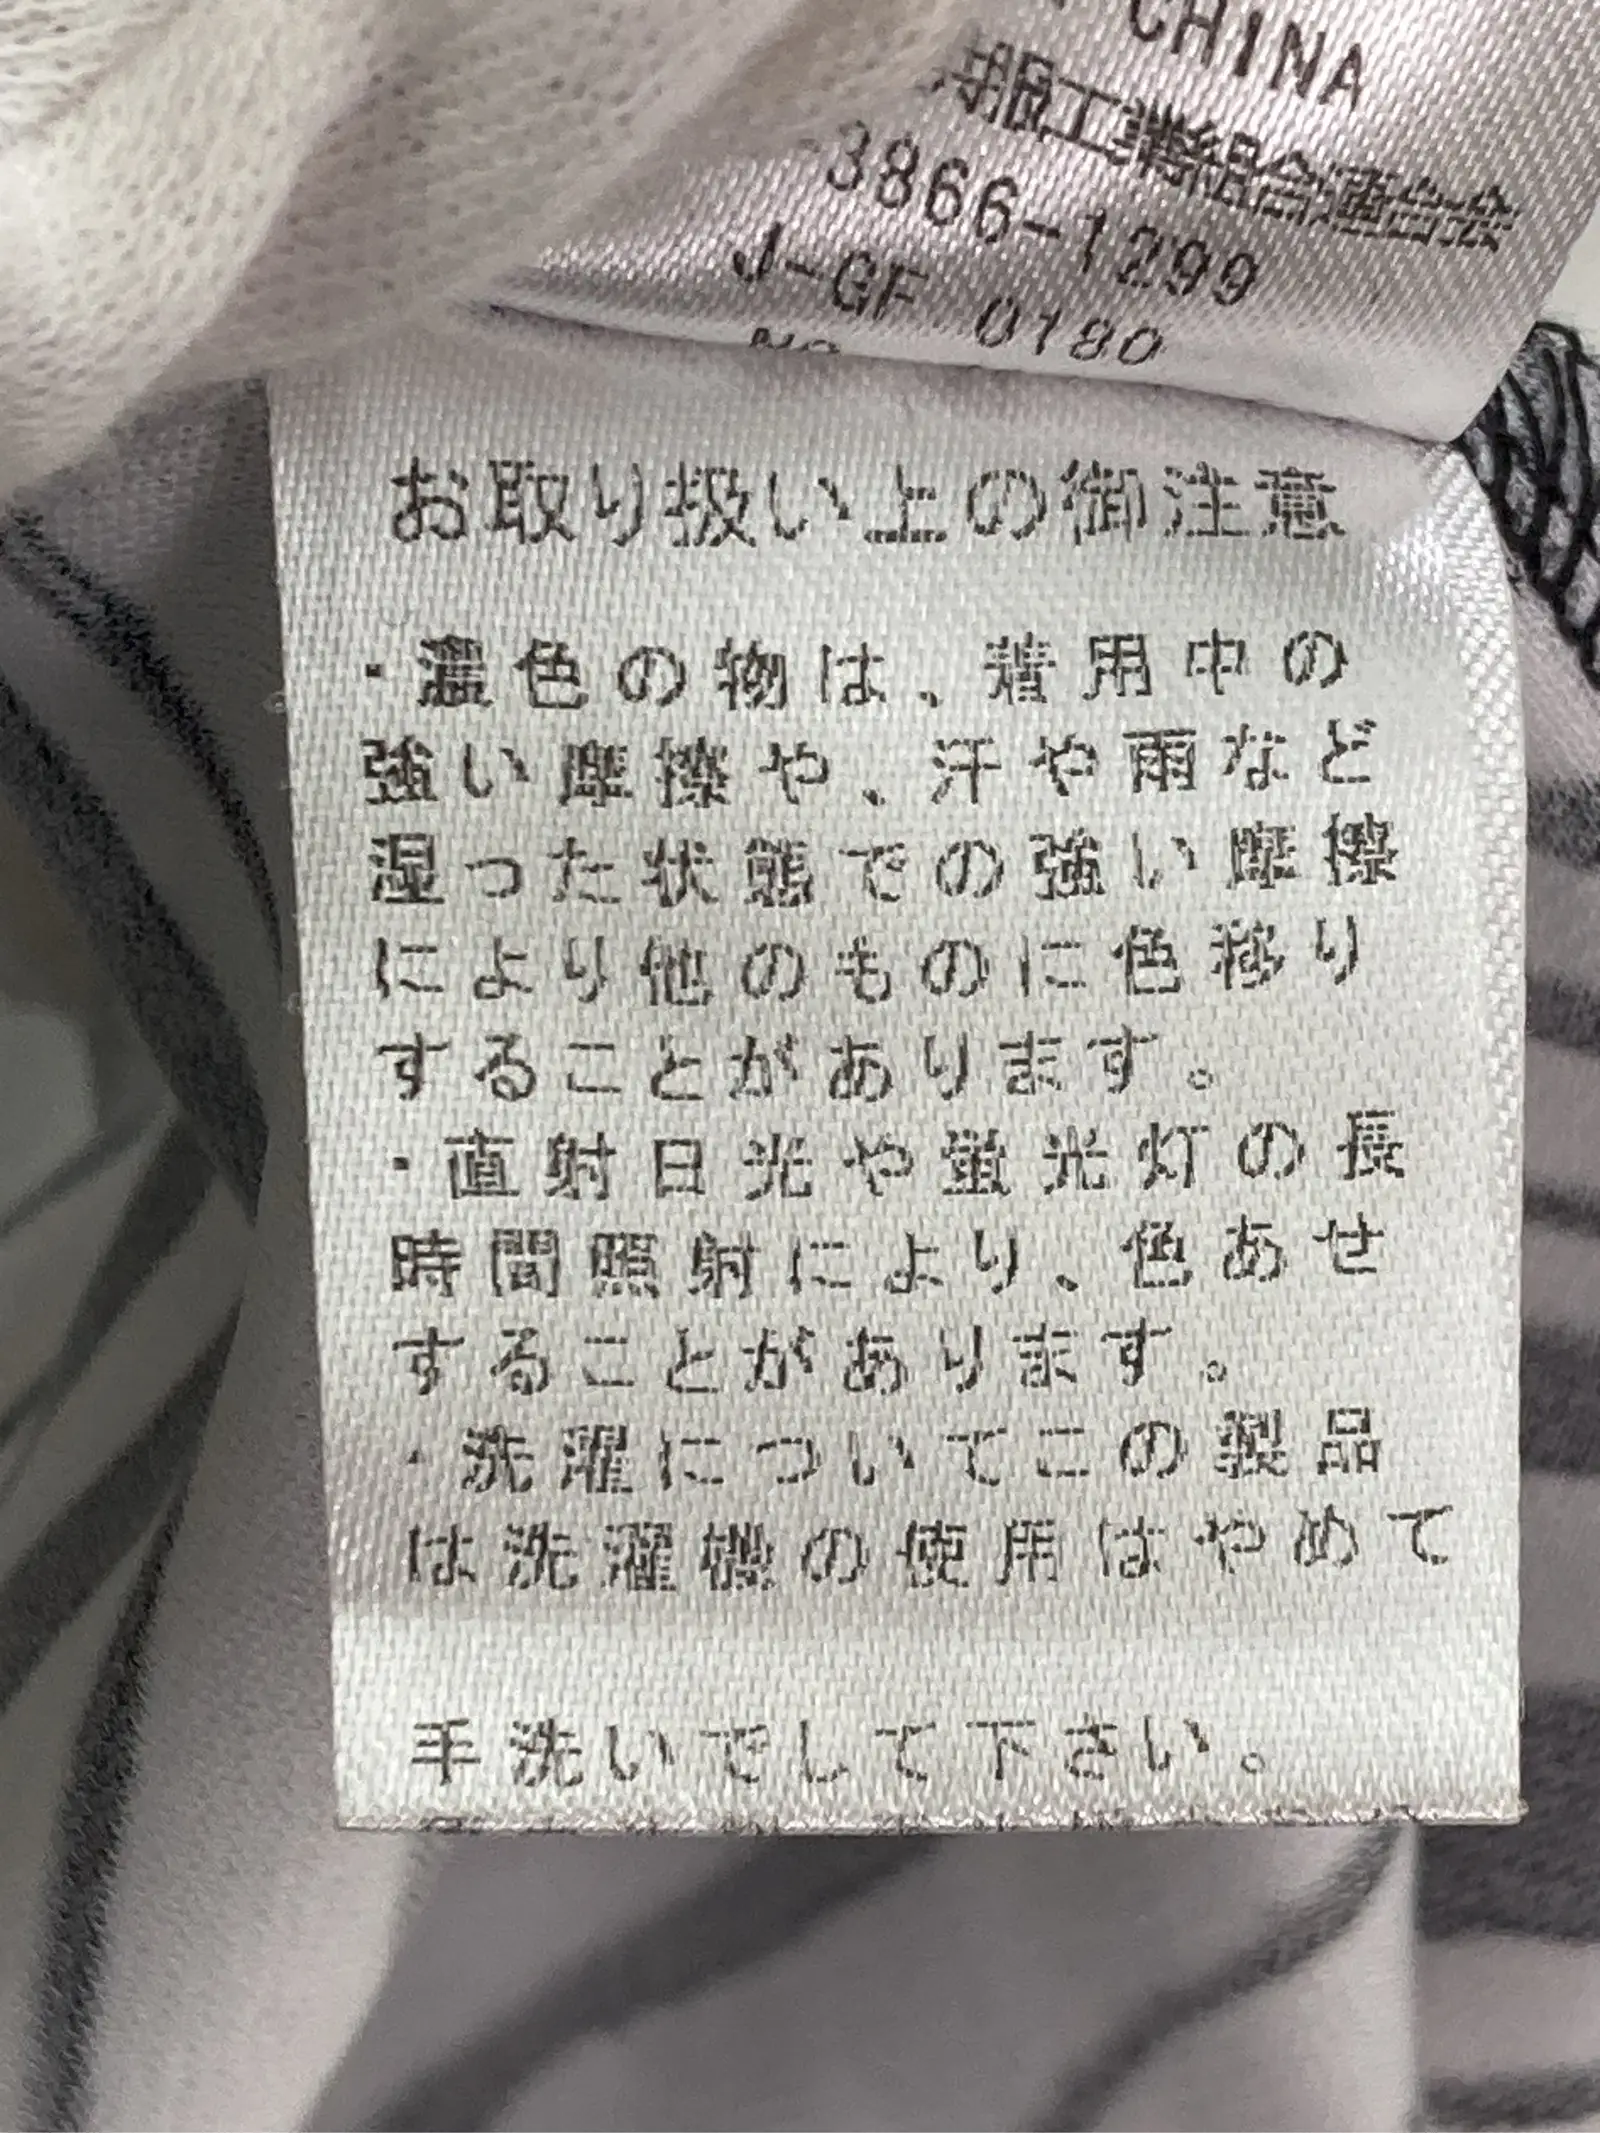 CHINA
服工業組合連合会
-3866-1299
J-GF 0180
お取り扱い上の御注意
・濃色の物は、着用中の
強い摩擦や、汗や雨など
湿った状態での強い摩擦
により他のものに色移り
することがあります。
・直射日光や蛍光灯の長
時間照射により、色あせ
することがあります。
・洗濯についてこの製品
は洗濯機の使用はやめて
手洗いでして下さい。